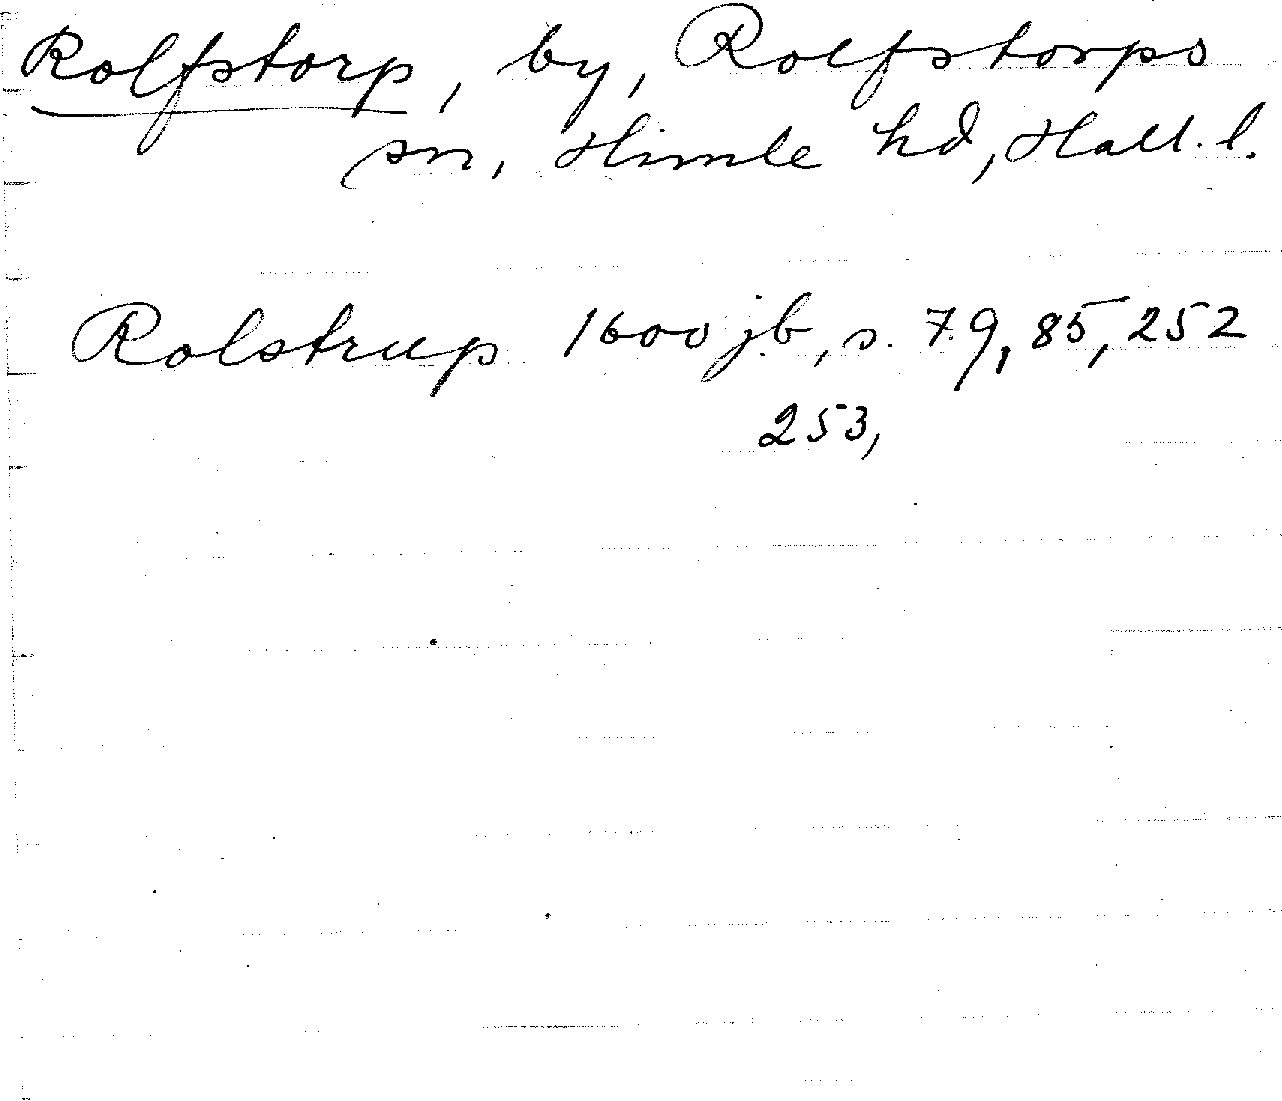 Rolfstorp, by, Rolfstorps
sn, Himle hd, Hall. l.
Rolstrup 1600 jb, s. 79, 85, 252
253,